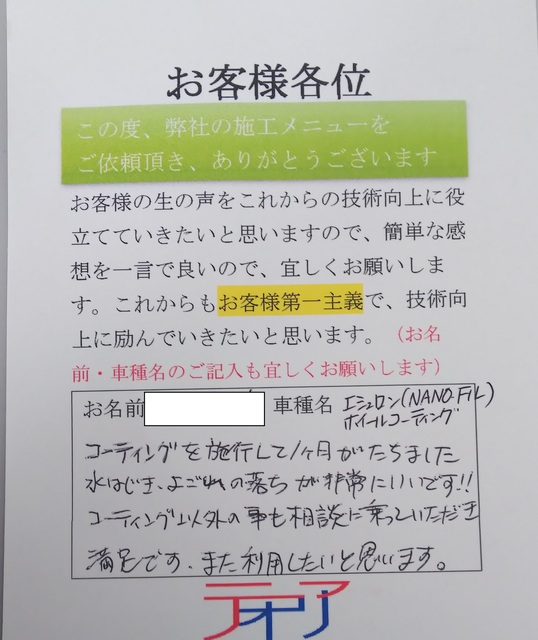 お客様各位
この度、弊社の施工メニューを
ご依頼頂き、ありがとうございます
お客様の生の声をこれからの技術向上に役
立てていきたいと思いますので、簡単な感
想を一言で良いので、宜しくお願いしま
す。これからもお客様第一主義で、技術向
上に励んでいきたいと思います。（お名
前・車種名のご記入も宜しくお願いします）
お名前 車種名 エシュロン(NANO-FIL)
ホイールコーティング
コーティングを施行して1ヶ月がたちました
水はじき、よごれの落ちが非常にいいです!!
コーティング以外の事も相談に乗っていただき
満足です、また利用したいと思います。
テオリア